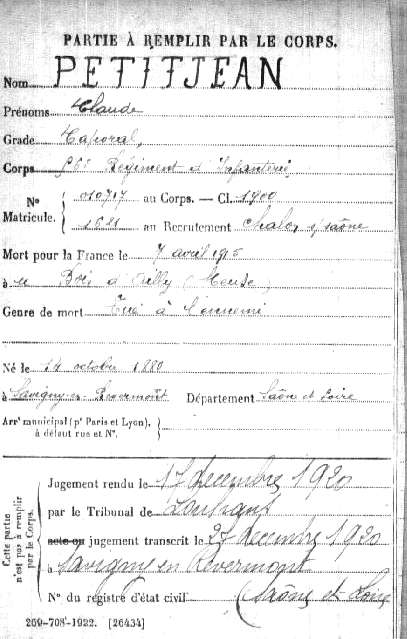 PARTIE À REMPLIR PAR LE CORPS.
Nom PETITJEAN
Prénoms Claude
Grade Caporal,
Corps 56e Régiment d'Infanterie
Nº 010717 au Corps. — Cl. 1900
Matricule. 1521 au Recrutement Chalon s/ Saône
Mort pour la France le 7 avril 1915
à Bois d'Ailly (Meuse)
Genre de mort Tué à l'ennemi
Né le 14 octobre 1880
à Savigny en Revermont Département Saône et Loire
Arrt municipal (pr Paris et Lyon), à défaut rue et Nº.
Cette partie n'est pas à remplir par le Corps.
Jugement rendu le 17 décembre 1920
par le Tribunal de Louhans
acte ou jugement transcrit le 27 décembre 1920
à Savigny en Revermont
Nº du registre d'état civil (Saône et Loire
269-708-1922. [26434]